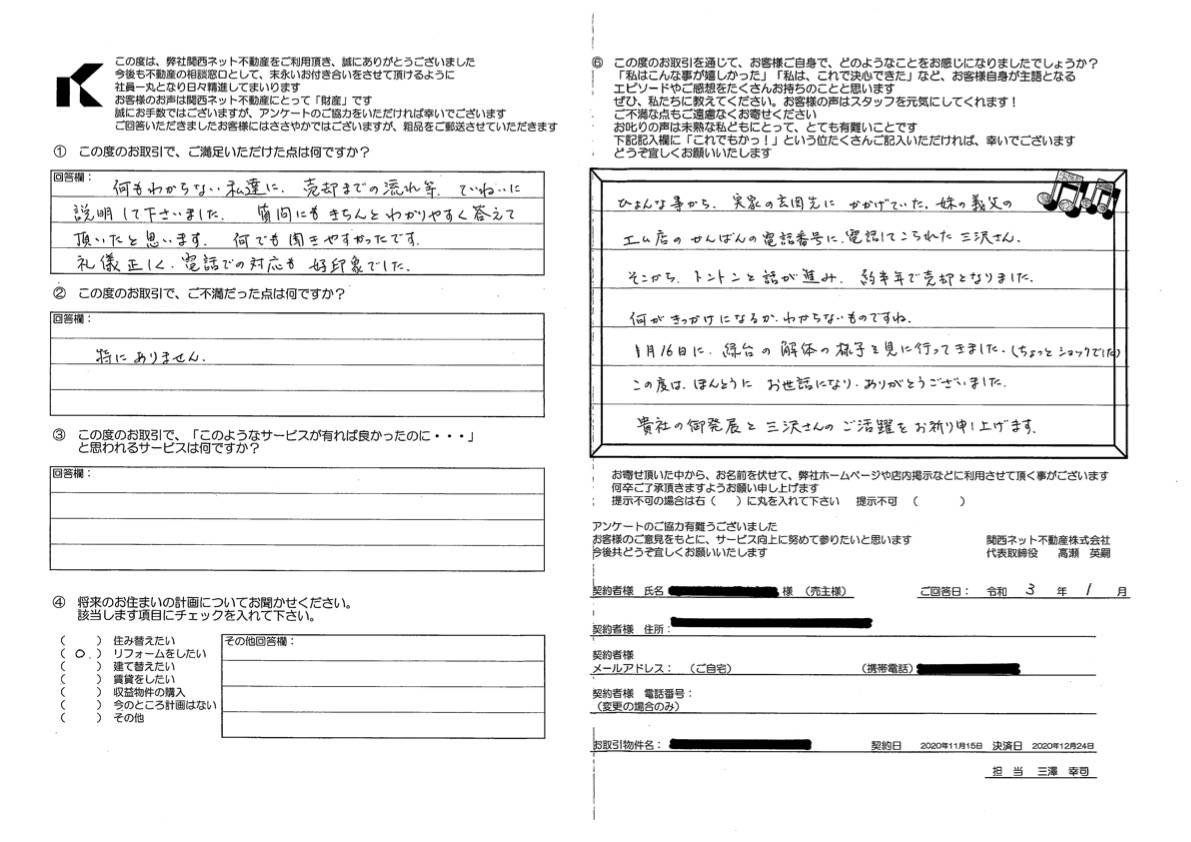 この度は、弊社関西ネット不動産をご利用頂き、誠にありがとうございました
今後も不動産の相談窓口として、末永いお付き合いをさせて頂けるように
社員一丸となり日々精進してまいります
お客様のお声は関西ネット不動産にとって「財産」です
誠にお手数ではございますが、アンケートのご協力をいただければ幸いでございます
ご回答いただきましたお客様にはささやかではございますが、粗品をご郵送させていただきます
① この度のお取引で、ご満足いただけた点は何ですか？
回答欄：
何もわからない私達に、売却までの流れ等、ていねいに
説明して下さいました。 質問にもきちんとわかりやすく答えて
頂いたと思います。 何でも聞きやすかったです。
礼儀正しく、電話での対応も好印象でした。
② この度のお取引で、ご不満だった点は何ですか？
回答欄：
特にありません。
③ この度のお取引で、「このようなサービスが有れば良かったのに・・・」
と思われるサービスは何ですか？
回答欄：
④ 将来のお住まいの計画についてお聞かせください。
該当します項目にチェックを入れて下さい。
（　　） 住み替えたい
（ ○ ） リフォームをしたい
（　　） 建て替えたい
（　　） 賃貸をしたい
（　　） 収益物件の購入
（　　） 今のところ計画はない
（　　） その他
その他回答欄：
⑥ この度のお取引を通じて、お客様ご自身で、どのようなことをお感じになりましたでしょうか？
「私はこんな事が嬉しかった」「私は、これで決心できた」など、お客様自身が主語となる
エピソードやご感想をたくさんお持ちのことと思います
ぜひ、私たちに教えてください。お客様の声はスタッフを元気にしてくれます！
ご不満な点もご遠慮なくお寄せください
お叱りの声は未熟な私どもにとって、とても有難いことです
下記記入欄に「これでもかっ！」という位たくさんご記入いただければ、幸いでございます
どうぞ宜しくお願いいたします
ひょんな事から、実家の玄関先にかかげていた、妹の義父の
工ム店のかんばんの電話番号に、電話してこられた三沢さん。
そこから、トントンと話が進み、約半年で売却となりました。
何がきっかけになるか、わからないものですね。
1月16日に、緑台の解体の様子を見に行ってきました。（ちょっとショックでした）
この度は、ほんとうにお世話になり、ありがとうございました。
貴社の御発展と三沢さんのご活躍をお祈り申し上げます。
お寄せ頂いた中から、お名前を伏せて、弊社ホームページや店内掲示などに利用させて頂く事がございます
何卒ご了承頂きますようお願い申し上げます
提示不可の場合は右（　　）に丸を入れて下さい　提示不可　（　　　　）
アンケートのご協力有難うございました
お客様のご意見をもとに、サービス向上に努めて参りたいと思います
今後共どうぞ宜しくお願いいたします
関西ネット不動産株式会社
代表取締役　高瀬　英嗣
契約者様 氏名 様 （売主様） ご回答日： 令和 3 年 1 月
契約者様 住所：
契約者様
メールアドレス： （ご自宅） （携帯電話）
契約者様 電話番号：
（変更の場合のみ）
お取引物件名： 契約日 2020年11月15日 決済日 2020年12月24日
担　当　三澤　幸司